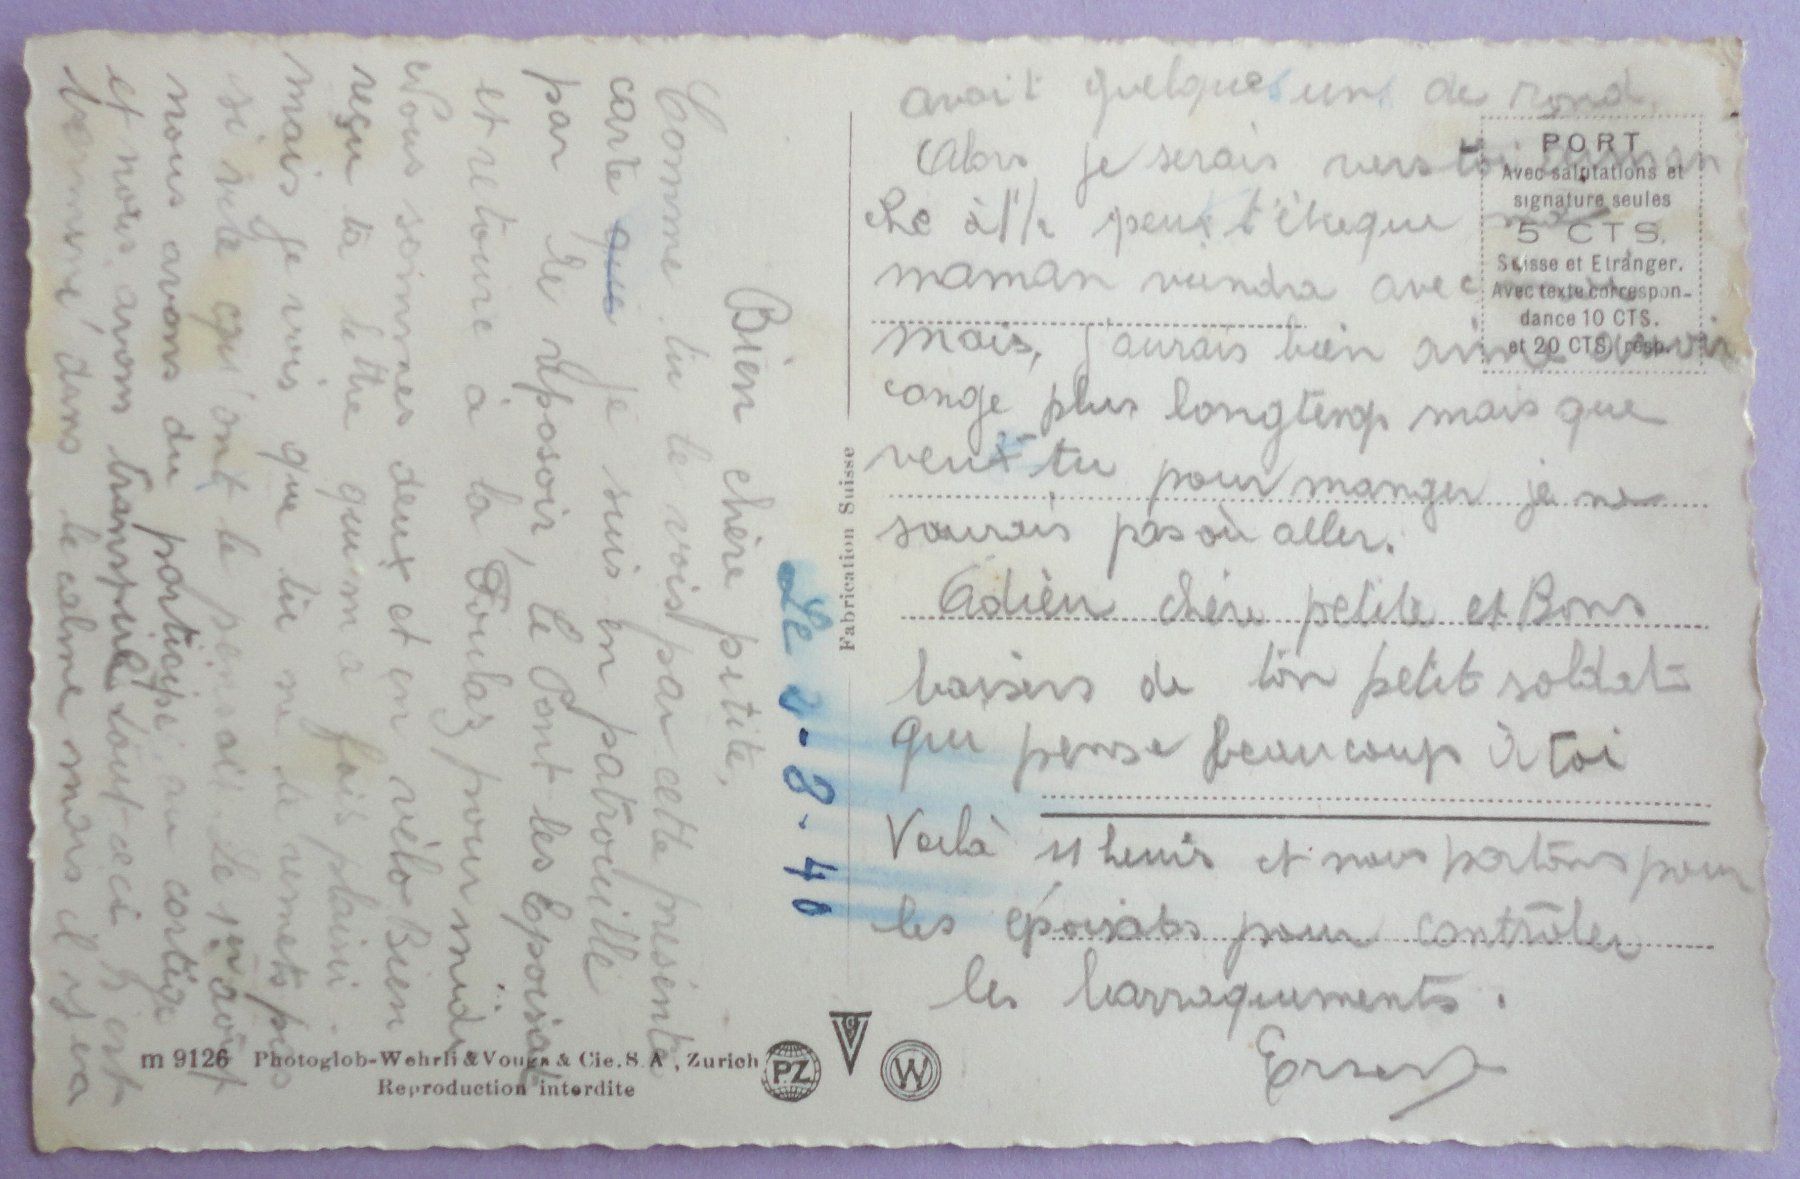 Le 2-8-40
Bien chère petite,
Comme tu le vois par cette présente
carte que je suis en patrouille
par le reposoir, le Pont les Epoisats
et retoure à la Foulaz pour midi
Nous sommes deux et en vélo Bien
reçu ta lettre qui m'a fais plaisir
mais je vois que tu ne te remets pas
si vite que le pensais. Le 1er août
nous avons du participé au cortège
et nous avons transpiré tout ceci c'est
terminé dans le calme mais il y en
avait quelques uns de rond.
Alors je serais vers toi diman
che à 11h peut t'être que ma
maman viendra avec
mais, j'aurais bien aimé avoir
congé plus longtemp mais que
veux tu pour manger je ne
saurais pas où aller.
Adieu chère petite et Bons
baisers de ton petit soldat
qui pense beaucoup à toi
Voilà 11 heures et nous partons pour
les époisats pour contrôler
les barraquements.
Ernest
PORT
Avec salutations et
signature seules
5 CTS.
Suisse et Etranger.
Avec texte correspon-
dance 10 CTS.
et 20 CTS. resp.
Fabrication Suisse
m 9126 Photoglob-Wehrli & Vouga & Cie. S.A., Zurich
Reproduction interdite
PZ
V
G
W